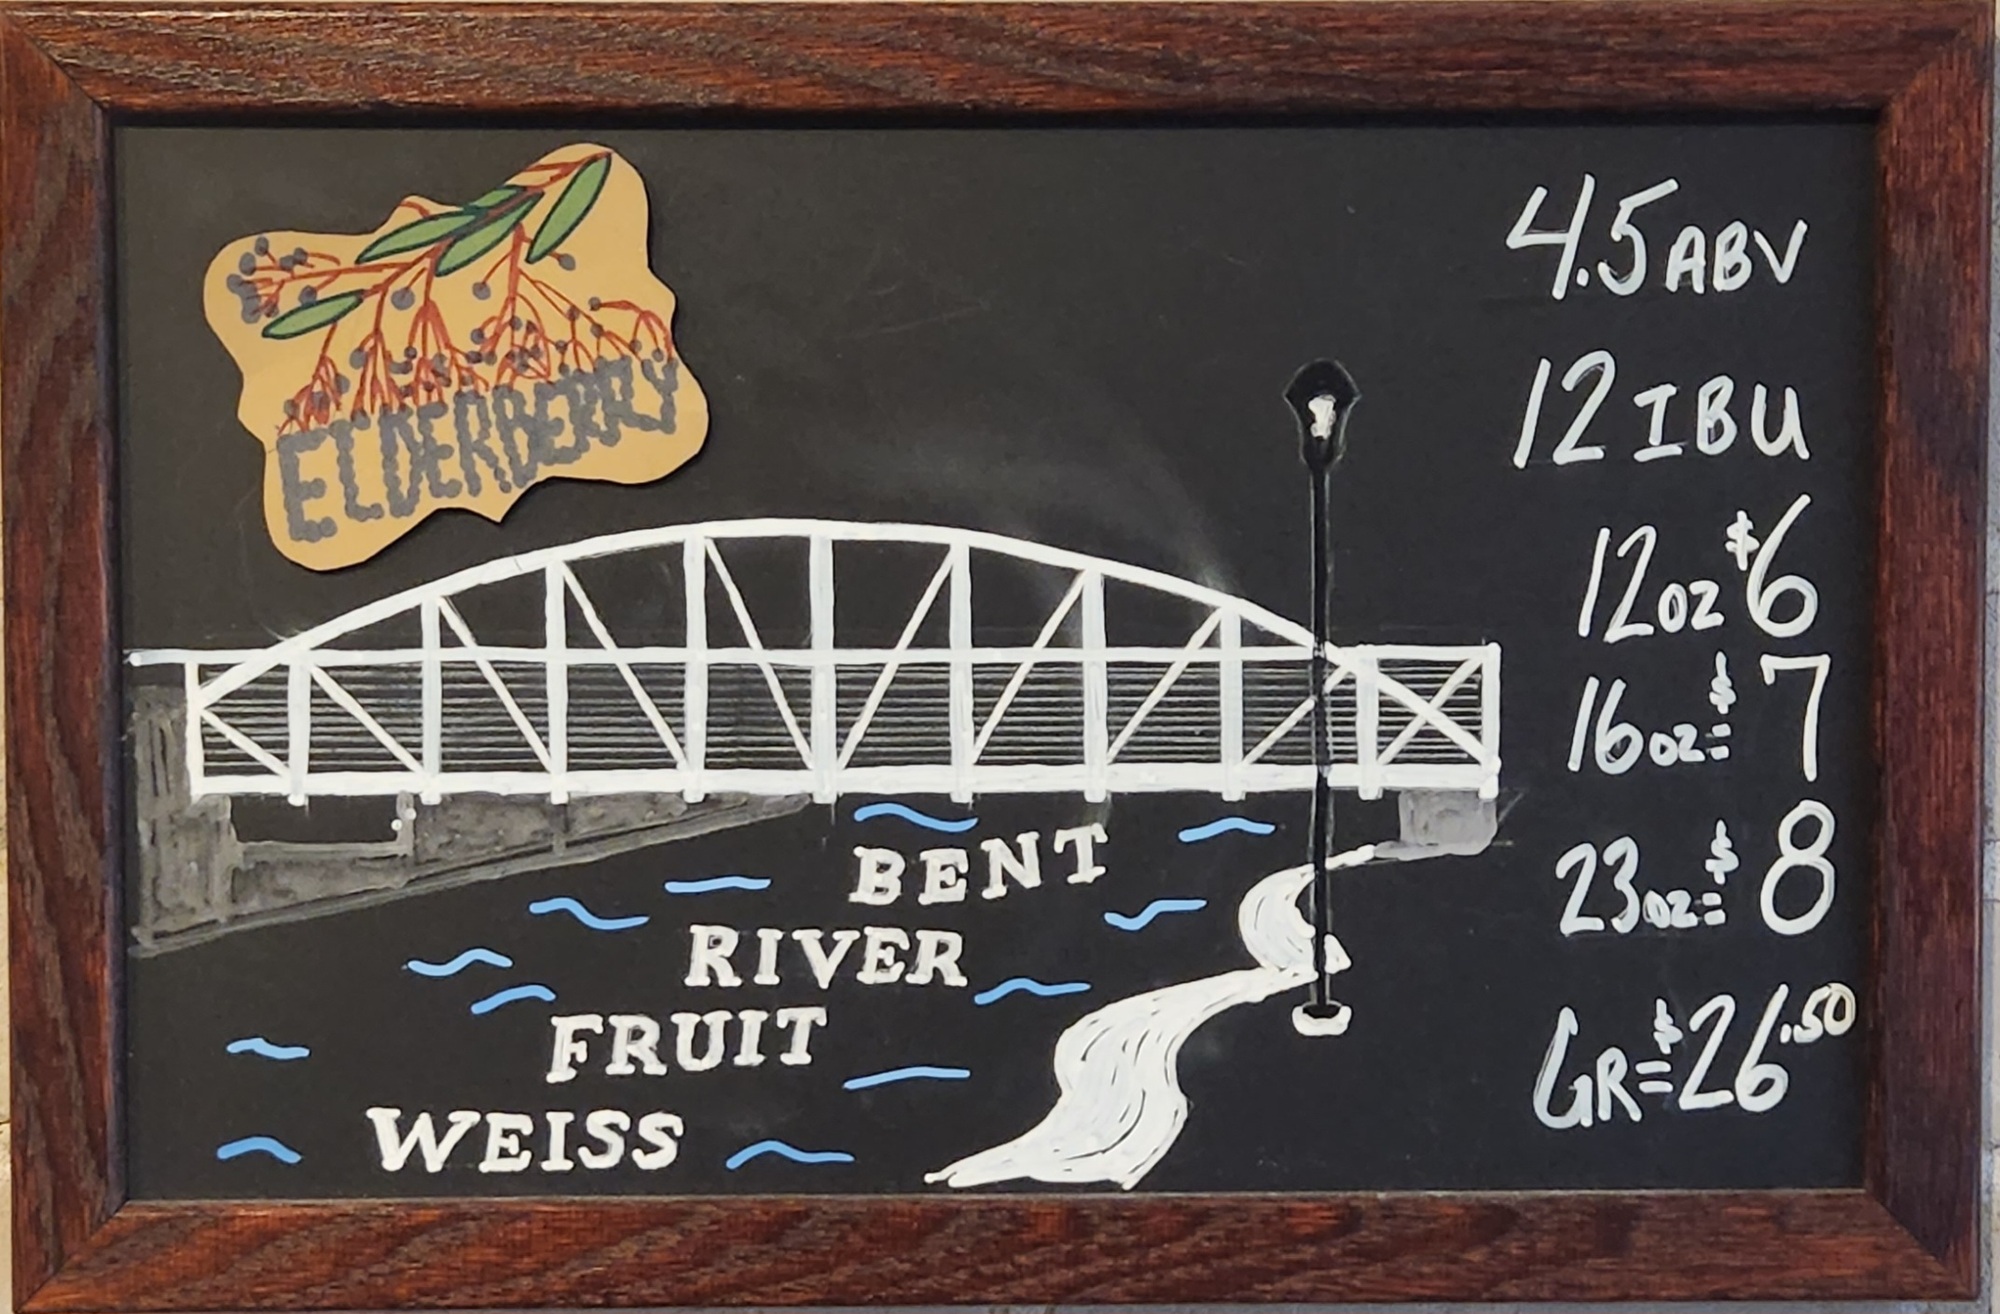 ELDERBERRY
4.5 ABV
12 IBU
12oz $6
16oz=$7
23oz=$8
GR=$26.50
BENT
RIVER
FRUIT
WEISS